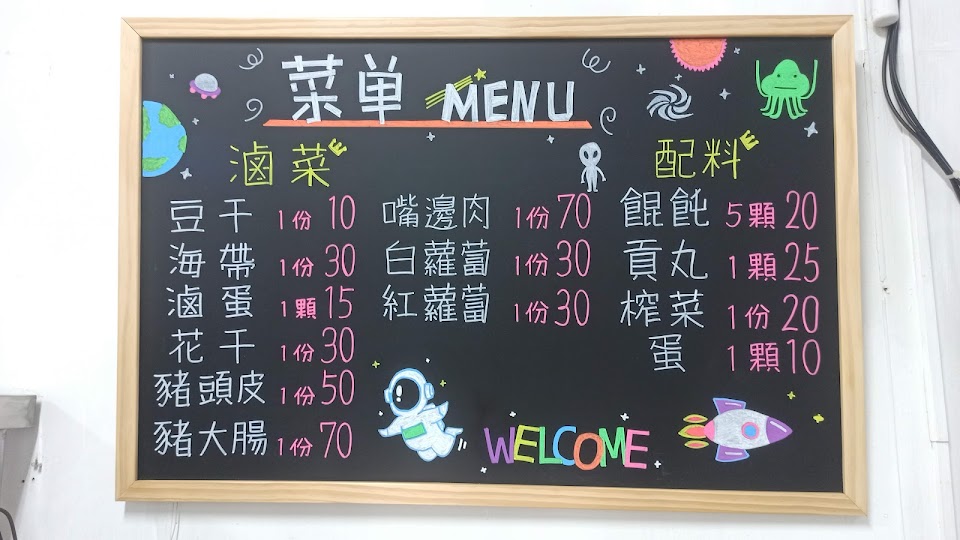 菜单 MENU
滷菜
豆干 1份 10
海帶 1份 30
滷蛋 1顆 15
花干 1份 30
豬頭皮 1份 50
豬大腸 1份 70
嘴邊肉 1份 70
白蘿蔔 1份 30
紅蘿蔔 1份 30
配料
餛飩 5顆 20
貢丸 1顆 25
榨菜 1份 20
蛋 1顆 10
WELCOME